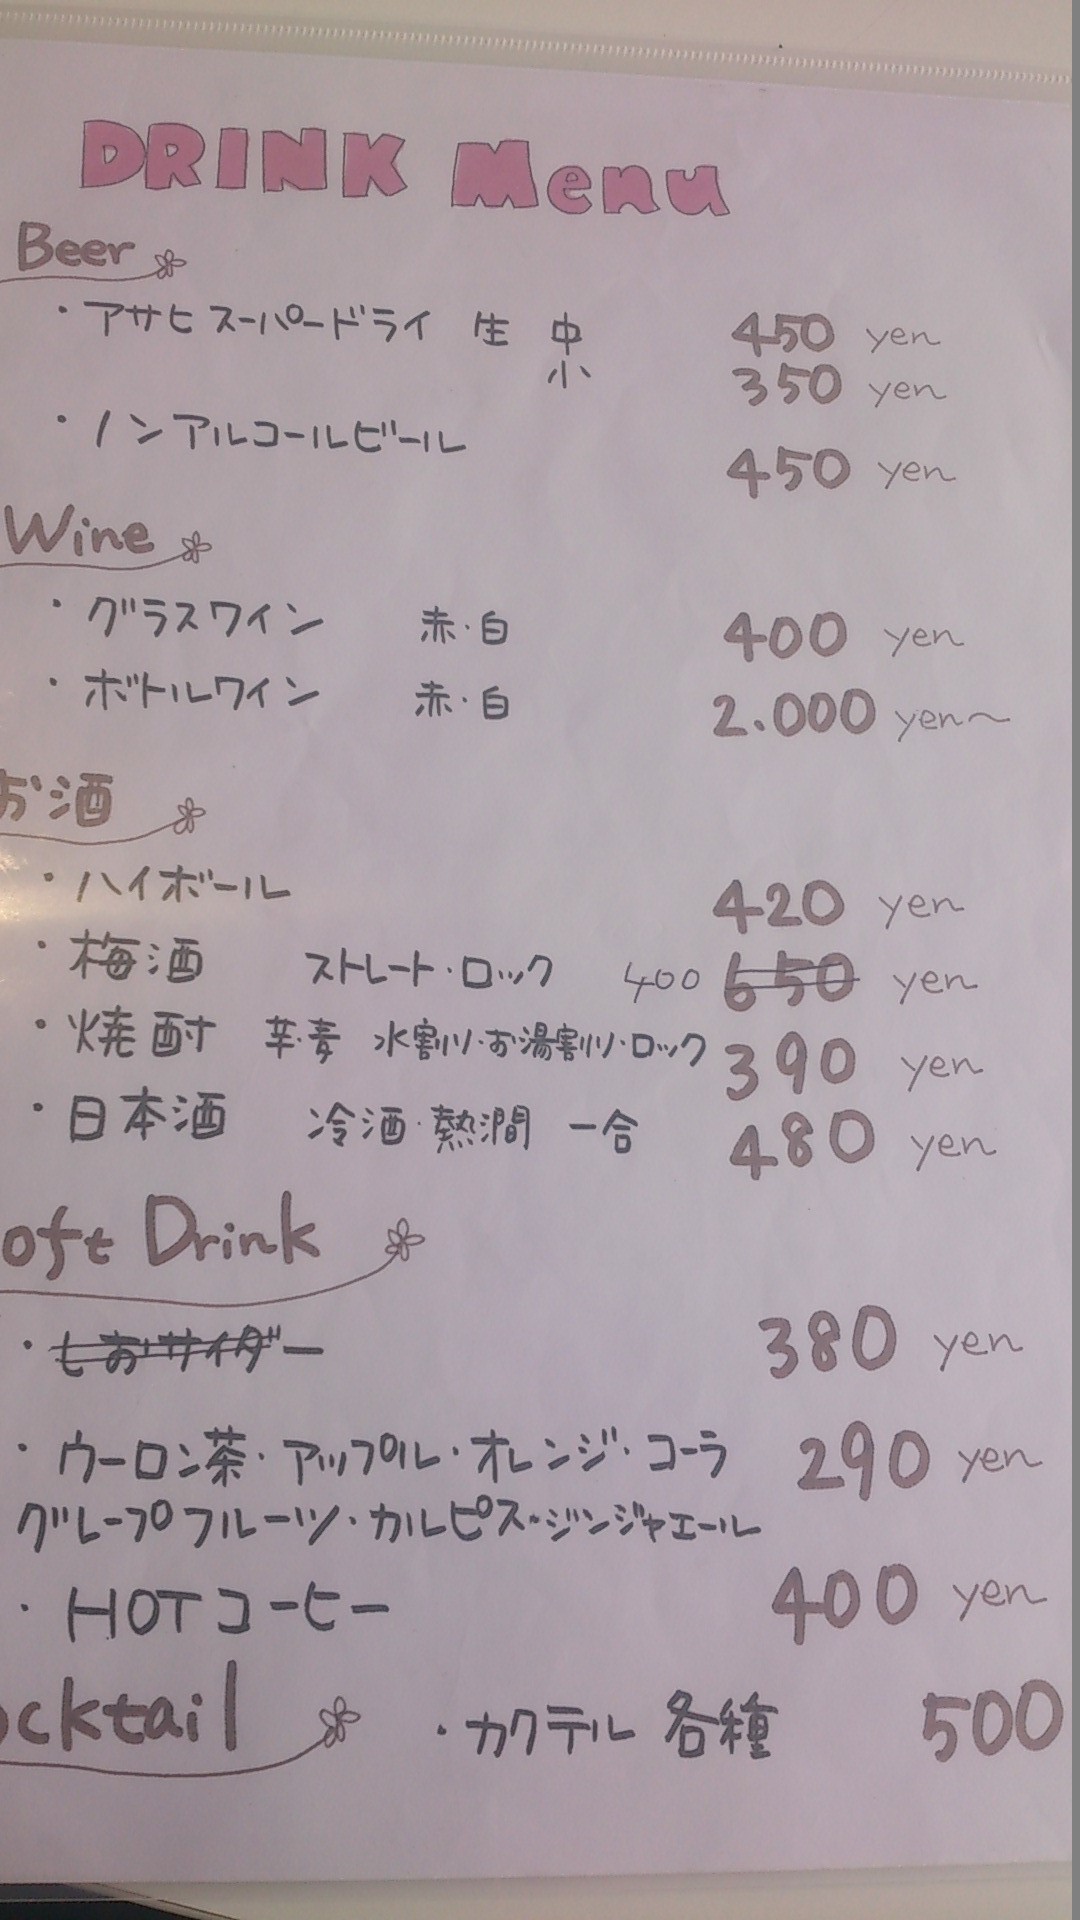 DRINK Menu
Beer
・アサヒスーパードライ 生 中 450 yen
小 350 yen
・ノンアルコールビール 450 yen
Wine
・グラスワイン 赤・白 400 yen
・ボトルワイン 赤・白 2.000 yen〜
お酒
・ハイボール 420 yen
・梅酒 ストレート・ロック 400 650 yen
・焼酎 芋・麦 水割り・お湯割り・ロック 390 yen
・日本酒 冷酒・熱澗 一合 480 yen
oft Drink
・しおサイダー 380 yen
・ウーロン茶・アップル・オレンジ・コーラ 290 yen
グレープフルーツ・カルピス・ジンジャエール
・HOTコーヒー 400 yen
ocktail ・カクテル 各種 500